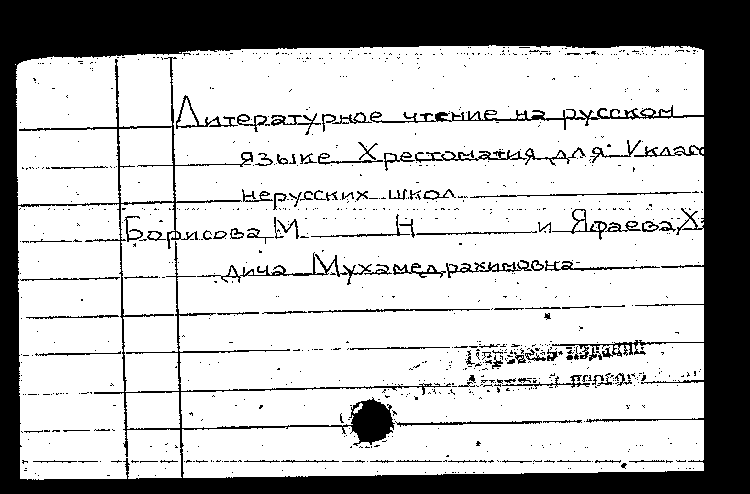 Литературное чтение на русском
языке Хрестоматия для V клас
нерусских школ
Борисова, М Н и Яфаева, Х
дича Мухамедрахимовна
изданий
первого